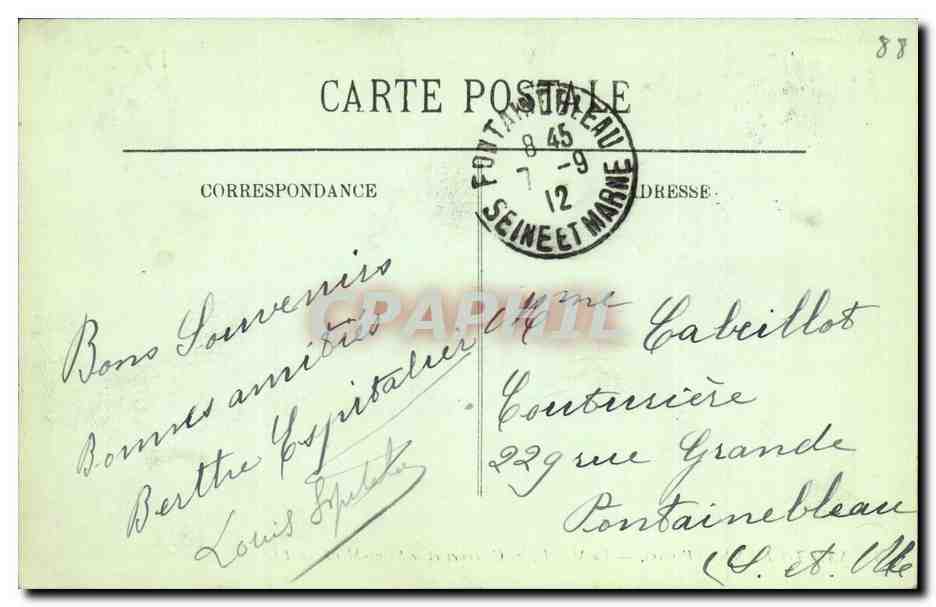 88
CARTE POSTALE
FONTAINEBLEAU
8 45
7 -9
12
SEINE ET MARNE
CORRESPONDANCE
ADRESSE
Bons Souvenirs
Bonnes amitiés
Berthe Espitalier
Louis
CPAPHIL
Mme Cabeillot
Couturière
229 rue Grande
Fontainebleau
(S. et Me